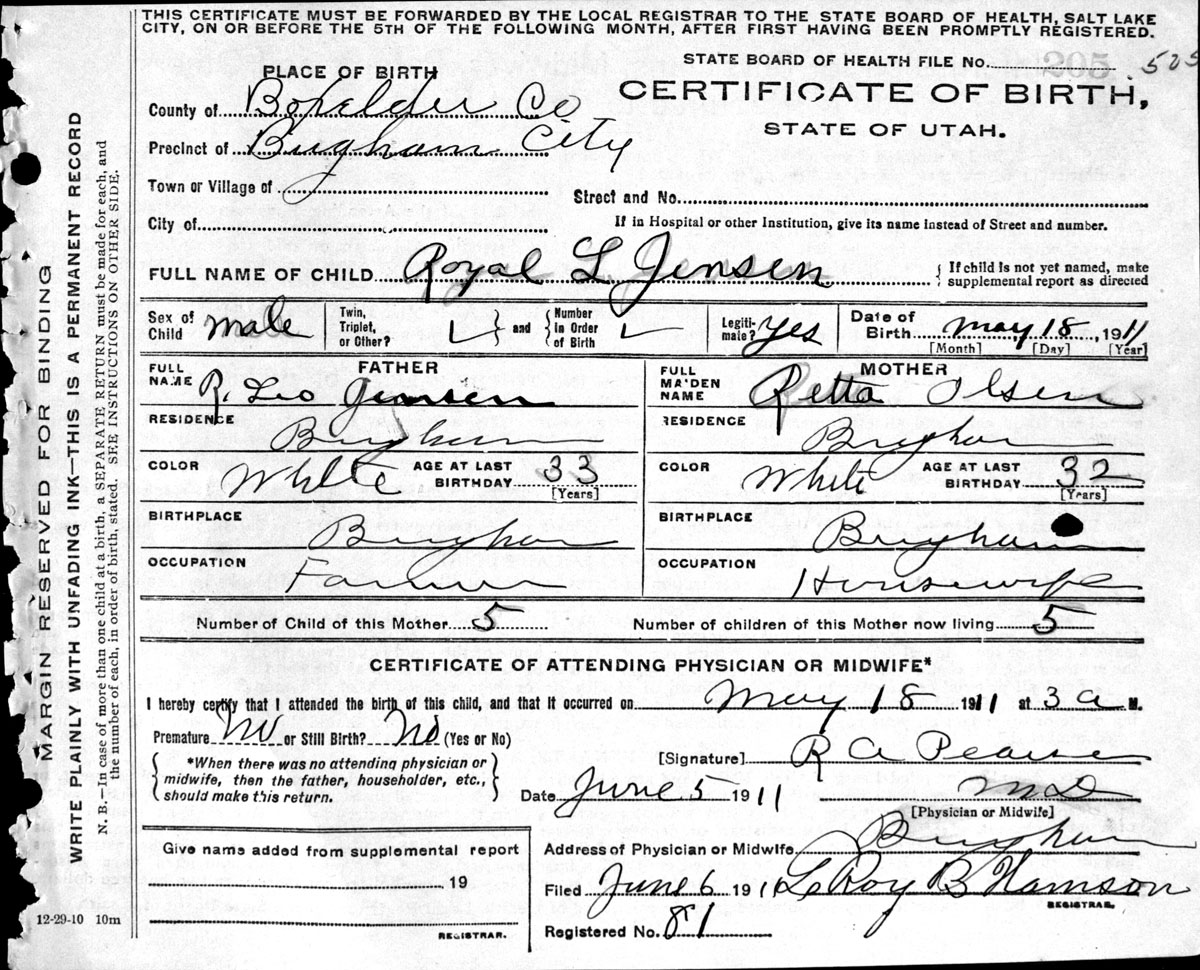 THIS CERTIFICATE MUST BE FORWARDED BY THE LOCAL REGISTRAR TO THE STATE BOARD OF HEALTH, SALT LAKE
CITY, ON OR BEFORE THE 5TH OF THE FOLLOWING MONTH, AFTER FIRST HAVING BEEN PROMPTLY REGISTERED.
STATE BOARD OF HEALTH FILE No. 205 505
PLACE OF BIRTH
CERTIFICATE OF BIRTH,
STATE OF UTAH.
County of Boxelder Co
Precinct of Brigham City
Town or Village of
Street and No.
City of
If in Hospital or other Institution, give its name instead of Street and number.
FULL NAME OF CHILD Royal L Jensen { If child is not yet named, make
supplemental report as directed
Sex of Child male Twin, Triplet, or Other? and Number in Order of Birth Legitimate? yes Date of Birth may 18, 1911
[Month] [Day] [Year]
FATHER
FULL NAME R. Leo Jensen
RESIDENCE Brigham
COLOR White AGE AT LAST BIRTHDAY 33
[Years]
BIRTHPLACE Brigham
OCCUPATION Farmer
MOTHER
FULL MAIDEN NAME Retta Olsen
RESIDENCE Brigham
COLOR White AGE AT LAST BIRTHDAY 32
[Years]
BIRTHPLACE Brigham
OCCUPATION Housewife
Number of Child of this Mother 5 Number of children of this Mother now living 5
CERTIFICATE OF ATTENDING PHYSICIAN OR MIDWIFE*
I hereby certify that I attended the birth of this child, and that it occurred on May 18 1911 at 3 a M.
Premature No or Still Birth? No (Yes or No)
*When there was no attending physician or
midwife, then the father, householder, etc.,
should make this return.
[Signature] R A Pearse
Date June 5 1911 MD
[Physician or Midwife]
Give name added from supplemental report
19
REGISTRAR.
12-29-10 10m
Address of Physician or Midwife Brigham
Filed June 6 1911 LeRoy B
REGISTRAR.
Registered No. 81
MARGIN RESERVED FOR BINDING
WRITE PLAINLY WITH UNFADING INK—THIS IS A PERMANENT RECORD
N. B.—In case of more than one child at a birth, a SEPARATE RETURN must be made for each, and
the number of each, in order of birth, stated. SEE INSTRUCTIONS ON OTHER SIDE.